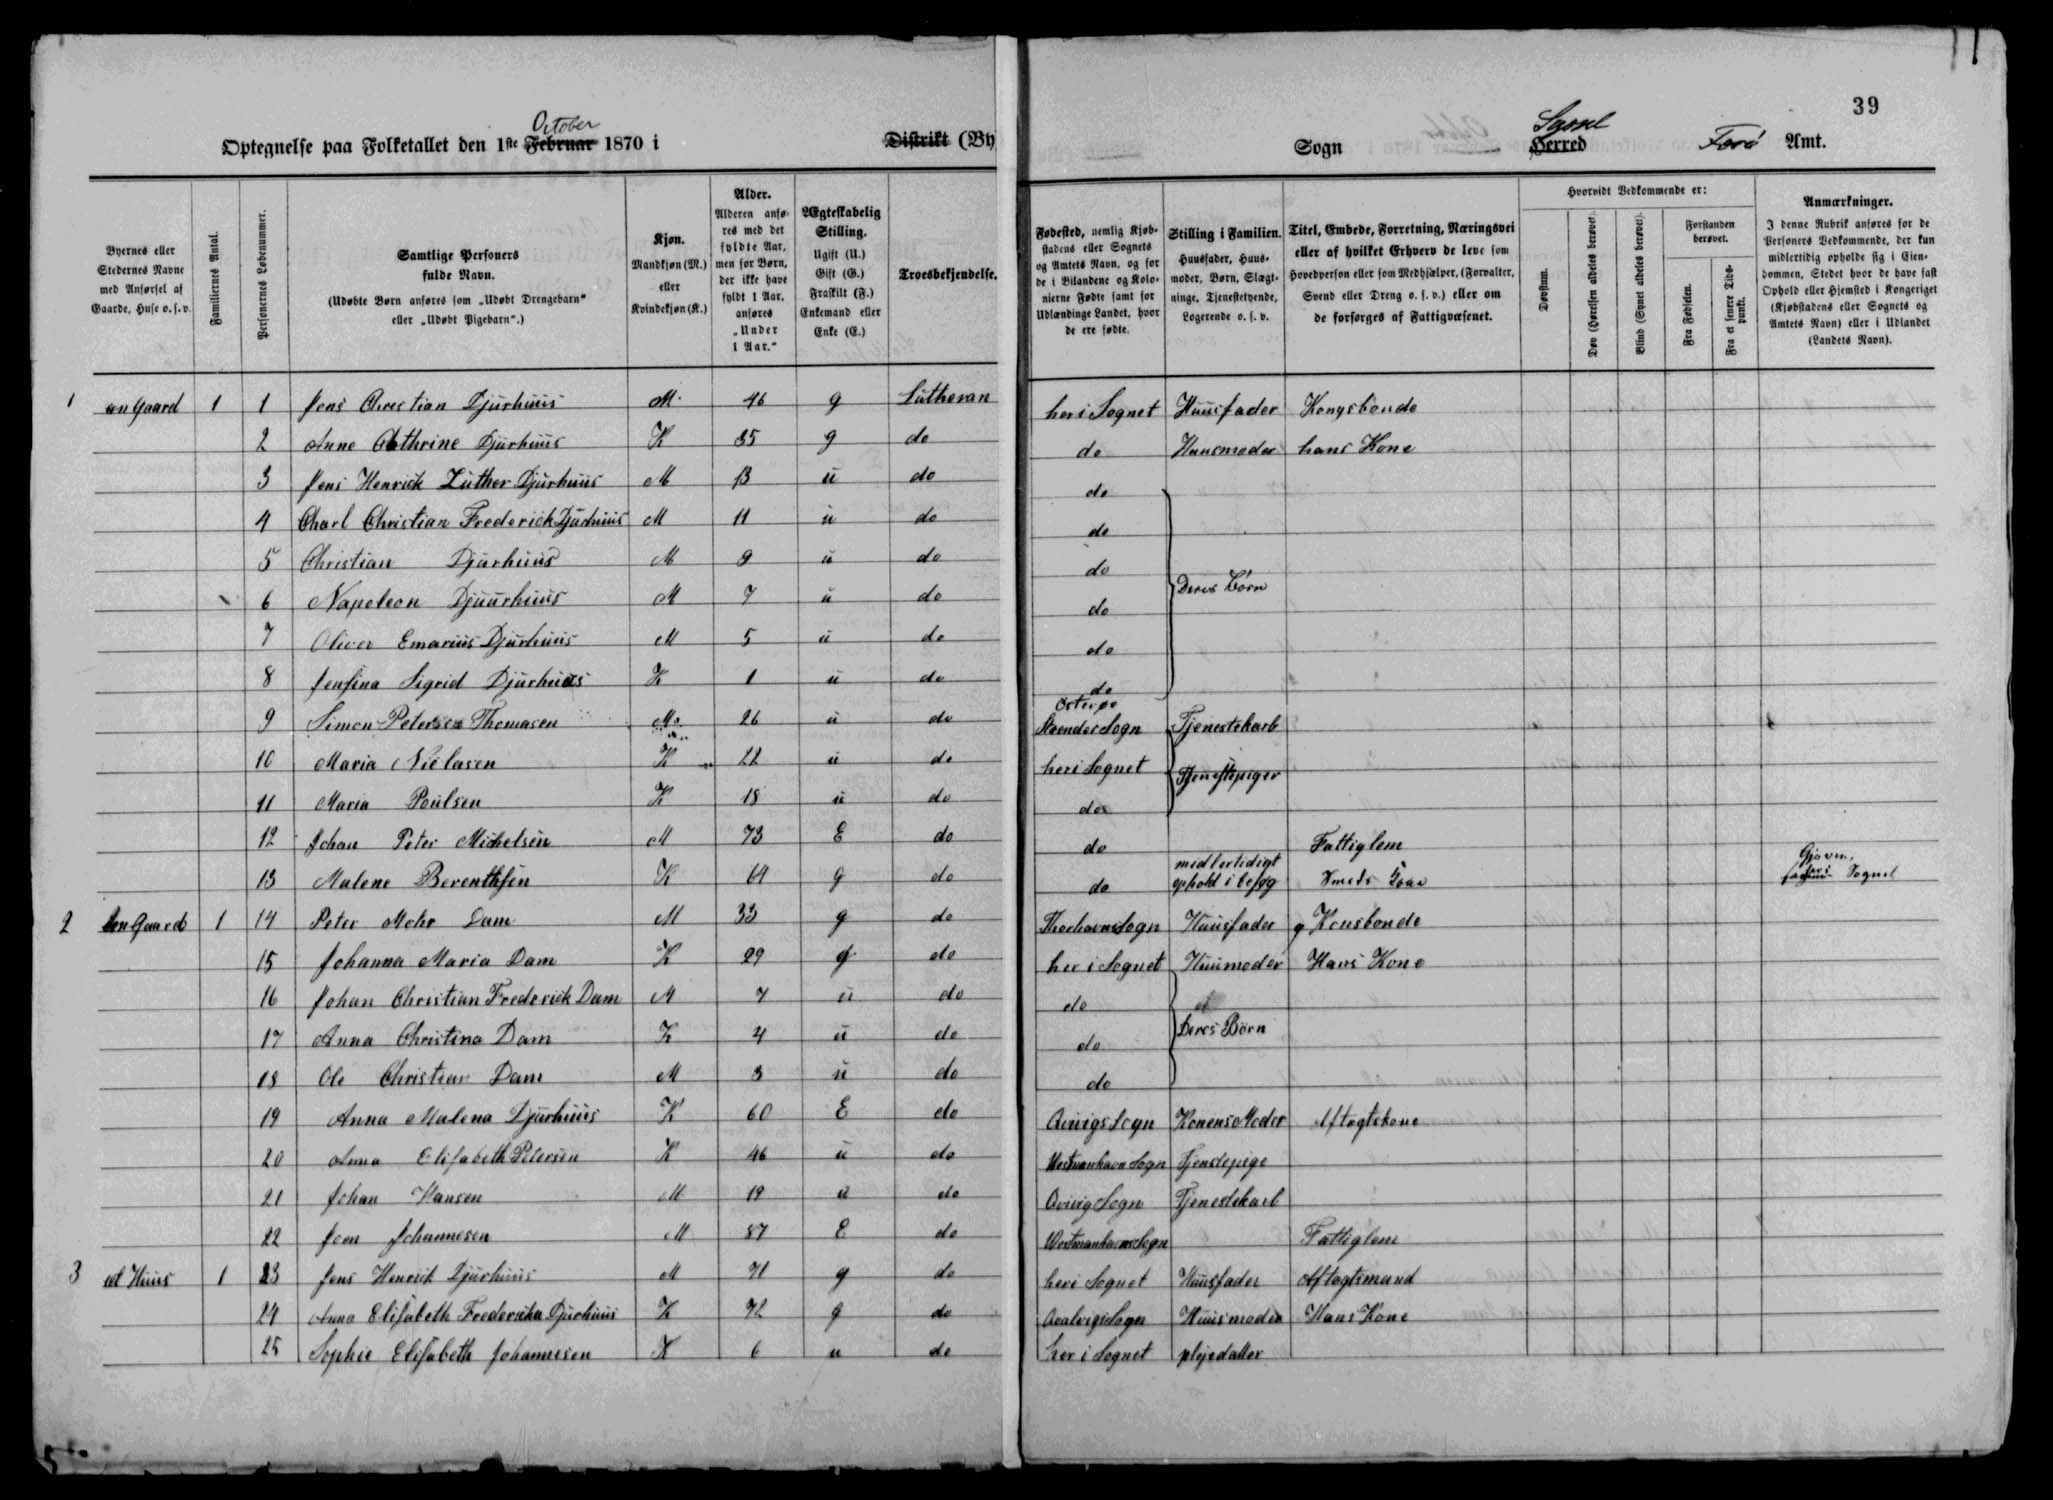 39
October
Optegnelse paa Folketallet den 1ste Februar 1870 i Distrikt (By
Sogn Syssel Herred Færø Amt.
Byernes eller Stedernes Navne med Anførsel af Gaarde, Huse o. s. v.
Familiernes Antal.
Personernes Løbenummer.
Samtlige Personers fulde Navn.
(Udøbte Børn anføres som „Udøbt Drengebarn“ eller „Udøbt Pigebarn“.)
Kjøn.
Mandkjøn (M.) eller Kvindekjøn (K.)
Alder.
Alderen anføres med det fyldte Aar, men for Børn, der ikke have fyldt 1 Aar, anføres „Under 1 Aar.“
Ægteskabelig Stilling.
Ugift (U.)
Gift (G.)
Fraskilt (F.)
Enkemand eller Enke (E.)
Troesbekjendelse.
Fødested, nemlig Kjøbstadens eller Sognets og Amtets Navn, og for de i Bilandene og Kolonierne Fødte samt for Udlændinge Landet, hvor de ere fødte.
Stilling i Familien.
Huusfader, Huusmoder, Børn, Slægtninge, Tjenestetyende, Logerende o. s. v.
Titel, Embede, Forretning, Næringsvei eller af hvilket Erhverv de leve som Hovedperson eller som Medhjælper, (Forvalter, Svend eller Dreng o. s. v.) eller om de forsørges af Fattigvæsenet.
Hvorvidt Vedkommende er:
Døvstum.
Døv (Hørelsen aldeles berøvet).
Blind (Synet aldeles berøvet).
Forstanden berøvet.
Fra Fødselen.
Fra et senere Tidspunkt.
Anmærkninger.
I denne Rubrik anføres for de Personers Vedkommende, der kun midlertidig opholde sig i Eiendommen, Stedet hvor de have fast Ophold eller Hjemsted i Kongeriget (Kjøbstadens eller Sognets og Amtets Navn) eller i Udlandet (Landets Navn).
1 en Gaard 1 1 Jens Christian Djurhuus M 46 g Lutheran her i Sognet Huusfader Kongsbonde
2 Anne Cathrine Djurhuus K 35 g do do Huusmoder hans Kone
3 Jens Henrick Luther Djurhuus M 13 u do do
4 Charl Christian Frederick Djurhuus M 11 u do do
5 Christian Djurhuus M 9 u do do
Deres Børn
6 Napoleon Djuurhuus M 7 u do do
7 Oliver Emarius Djurhuus M 5 u do do
8 Jensina Sigrid Djurhuus K 1 u do do
9 Simon Petersen Thomasen M 26 u do Østerøe Sogn Tjenestekarl
10 Maria Nielasen K 22 u do her i Sognet Tjenestepiger
11 Maria Poulsen K 18 u do do
12 Johan Peter Michelsen M 73 E do do Fattiglem
13 Malene Berenthsen K 64 g do do midlertidigt ophold i besøg Gjøven, Sognet
2 en Gaard 1 14 Peter Mohr Dam M 33 g do Thorhavns Sogn Huusfader Konsbonde
15 Johanna Maria Dam K 29 g do her i Sognet Huusmoder Hans Kone
16 Johan Christian Frederick Dam M 7 u do do
17 Anna Christina Dam K 4 u do do Deres Børn
18 Ole Christian Dam M 3 u do do
19 Anna Malena Djurhuus K 60 E do Qvivigs Sogn Konens Moder Aftagtskone
20 Anna Elisabeth Petersen K 46 u do Westmanhavn Sogn Tjenstepige
21 Johan Hansen M 19 u do Qvivig Sogn Tjenestekarl
22 Joen Johannesen M 87 E do Westmanhavns Sogn Fattiglem
3 et Huus 1 23 Jens Henrik Djurhuus M 71 g do her i Sognet Huusfader Aftagtsmand
24 Anna Elisabeth Frederikka Djurhuus K 72 g do Qvalvigs Sogn Huusmoder Hans Kone
25 Sophie Elisabeth Johannesen K 6 u do her i Sognet plejedatter